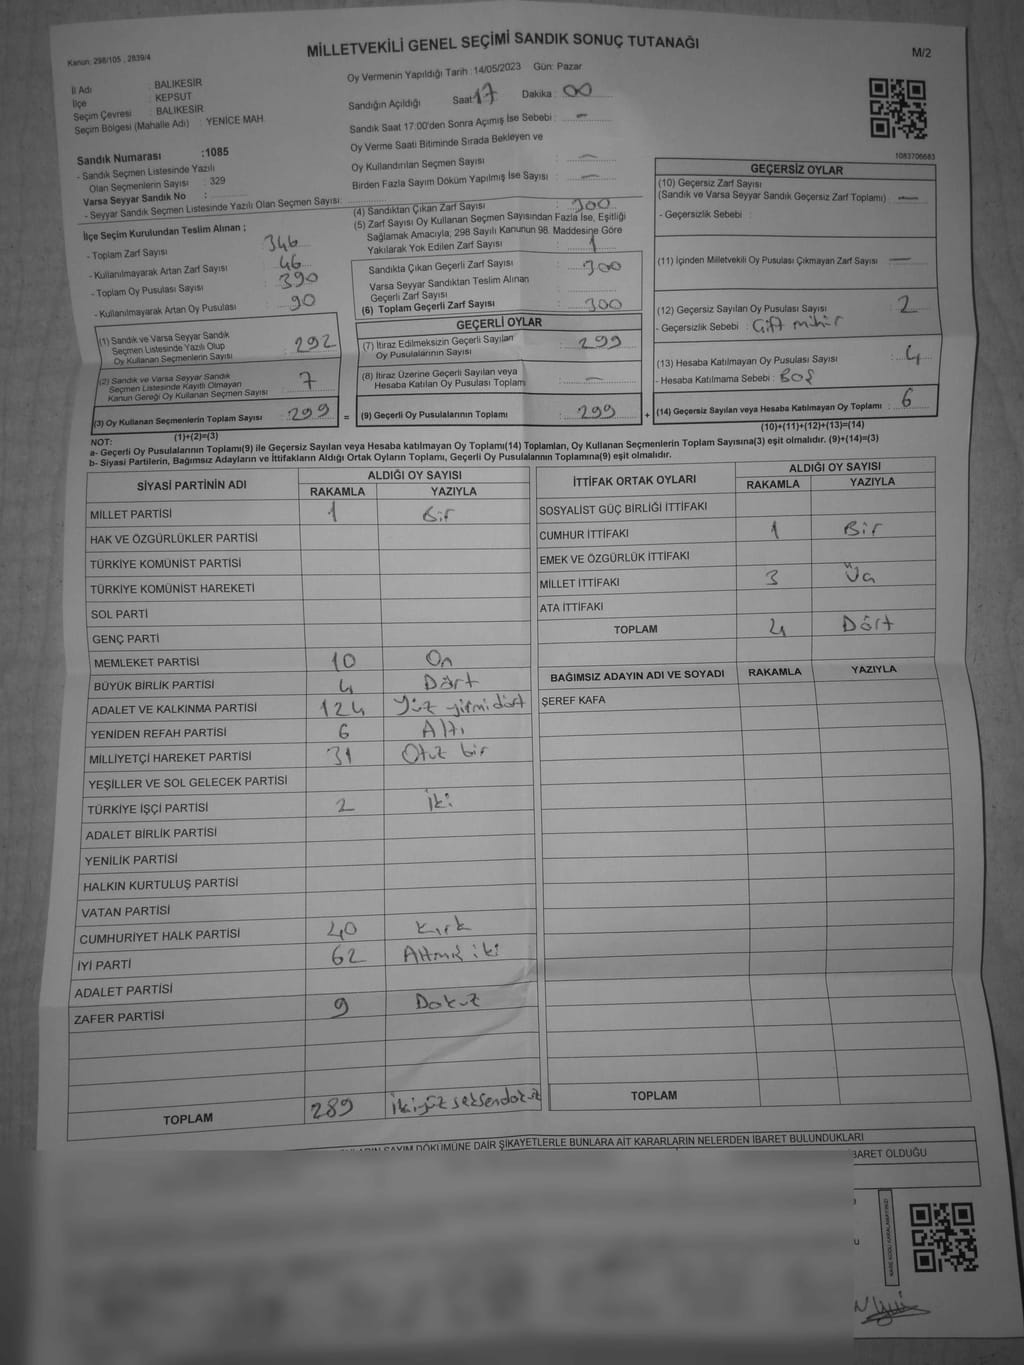 Kanun: 298/105 , 2839/4
MİLLETVEKİLİ GENEL SEÇİMİ SANDIK SONUÇ TUTANAĞI
M/2
İl Adı : BALIKESİR
İlçe : KEPSUT
Seçim Çevresi : BALIKESİR
Seçim Bölgesi (Mahalle Adı) : YENİCE MAH.
Sandık Numarası :1085
- Sandık Seçmen Listesinde Yazılı
Olan Seçmenlerin Sayısı : 329
Varsa Seyyar Sandık No :
- Seyyar Sandık Seçmen Listesinde Yazılı Olan Seçmen Sayısı:
İlçe Seçim Kurulundan Teslim Alınan ;
- Toplam Zarf Sayısı 346
- Kullanılmayarak Artan Zarf Sayısı 46
- Toplam Oy Pusulası Sayısı 390
- Kullanılmayarak Artan Oy Pusulası 90
(1) Sandık ve Varsa Seyyar Sandık
Seçmen Listesinde Yazılı Olup
Oy Kullanan Seçmenlerin Sayısı 292
(2) Sandık ve Varsa Seyyar Sandık
Seçmen Listesinde Kayıtlı Olmayan
Kanun Gereği Oy Kullanan Seçmen Sayısı 7
(3) Oy Kullanan Seçmenlerin Toplam Sayısı : 299 =
(1)+(2)=(3)
Oy Vermenin Yapıldığı Tarih : 14/05/2023 Gün: Pazar
Sandığın Açıldığı Saat 17 Dakika : 00
Sandık Saat 17:00'den Sonra Açımış İse Sebebi : —
Oy Verme Saati Bitiminde Sırada Bekleyen ve
Oy Kullandırılan Seçmen Sayısı : —
Birden Fazla Sayım Döküm Yapılmış İse Sayısı : —
(4) Sandıktan Çıkan Zarf Sayısı : 300
(5) Zarf Sayısı Oy Kullanan Seçmen Sayısından Fazla İse, Eşitliği
Sağlamak Amacıyla; 298 Sayılı Kanunun 98. Maddesine Göre
Yakılarak Yok Edilen Zarf Sayısı : 1
Sandıkta Çıkan Geçerli Zarf Sayısı : 300
Varsa Seyyar Sandıktan Teslim Alınan
Geçerli Zarf Sayısı
(6) Toplam Geçerli Zarf Sayısı : 300
GEÇERLİ OYLAR
(7) İtiraz Edilmeksizin Geçerli Sayılan
Oy Pusulalarının Sayısı : 299
(8) İtiraz Üzerine Geçerli Sayılan veya
Hesaba Katılan Oy Pusulası Toplamı : —
(9) Geçerli Oy Pusulalarının Toplamı : 299 +
1083706683
GEÇERSİZ OYLAR
(10) Geçersiz Zarf Sayısı
(Sandık ve Varsa Seyyar Sandık Geçersiz Zarf Toplamı) : —
- Geçersizlik Sebebi :
(11) İçinden Milletvekili Oy Pusulası Çıkmayan Zarf Sayısı : —
(12) Geçersiz Sayılan Oy Pusulası Sayısı : 2
- Geçersizlik Sebebi : Çift mühür
(13) Hesaba Katılmayan Oy Pusulası Sayısı : 4
- Hesaba Katılmama Sebebi : Boş
(14) Geçersiz Sayılan veya Hesaba Katılmayan Oy Toplamı : 6
(10)+(11)+(12)+(13)=(14)
NOT:
a- Geçerli Oy Pusulalarının Toplamı(9) ile Geçersiz Sayılan veya Hesaba katılmayan Oy Toplamı(14) Toplamları, Oy Kullanan Seçmenlerin Toplam Sayısına(3) eşit olmalıdır. (9)+(14)=(3)
b- Siyasi Partilerin, Bağımsız Adayların ve İttifakların Aldığı Ortak Oyların Toplamı, Geçerli Oy Pusulalarının Toplamına(9) eşit olmalıdır.
SİYASİ PARTİNİN ADI ALDIĞI OY SAYISI
RAKAMLA YAZIYLA
MİLLET PARTİSİ 1 Bir
HAK VE ÖZGÜRLÜKLER PARTİSİ
TÜRKİYE KOMÜNİST PARTİSİ
TÜRKİYE KOMÜNİST HAREKETİ
SOL PARTİ
GENÇ PARTİ
MEMLEKET PARTİSİ 10 On
BÜYÜK BİRLİK PARTİSİ 4 Dört
ADALET VE KALKINMA PARTİSİ 124 Yüz yirmidört
YENİDEN REFAH PARTİSİ 6 Altı
MİLLİYETÇİ HAREKET PARTİSİ 31 Otuz bir
YEŞİLLER VE SOL GELECEK PARTİSİ
TÜRKİYE İŞÇİ PARTİSİ 2 İki
ADALET BİRLİK PARTİSİ
YENİLİK PARTİSİ
HALKIN KURTULUŞ PARTİSİ
VATAN PARTİSİ
CUMHURİYET HALK PARTİSİ 40 Kırk
İYİ PARTİ 62 Altmış iki
ADALET PARTİSİ
ZAFER PARTİSİ 9 Dokuz
TOPLAM 289 İkiyüz seksendokuz
İTTİFAK ORTAK OYLARI ALDIĞI OY SAYISI
RAKAMLA YAZIYLA
SOSYALİST GÜÇ BİRLİĞİ İTTİFAKI
CUMHUR İTTİFAKI 1 Bir
EMEK VE ÖZGÜRLÜK İTTİFAKI
MİLLET İTTİFAKI 3 Üç
ATA İTTİFAKI
TOPLAM 4 Dört
BAĞIMSIZ ADAYIN ADI VE SOYADI RAKAMLA YAZIYLA
ŞEREF KAFA
TOPLAM
SAYIM DÖKÜMÜNE DAİR ŞİKAYETLERLE BUNLARA AİT KARARLARIN NELERDEN İBARET BULUNDUKLARI
BARET OLDUĞU